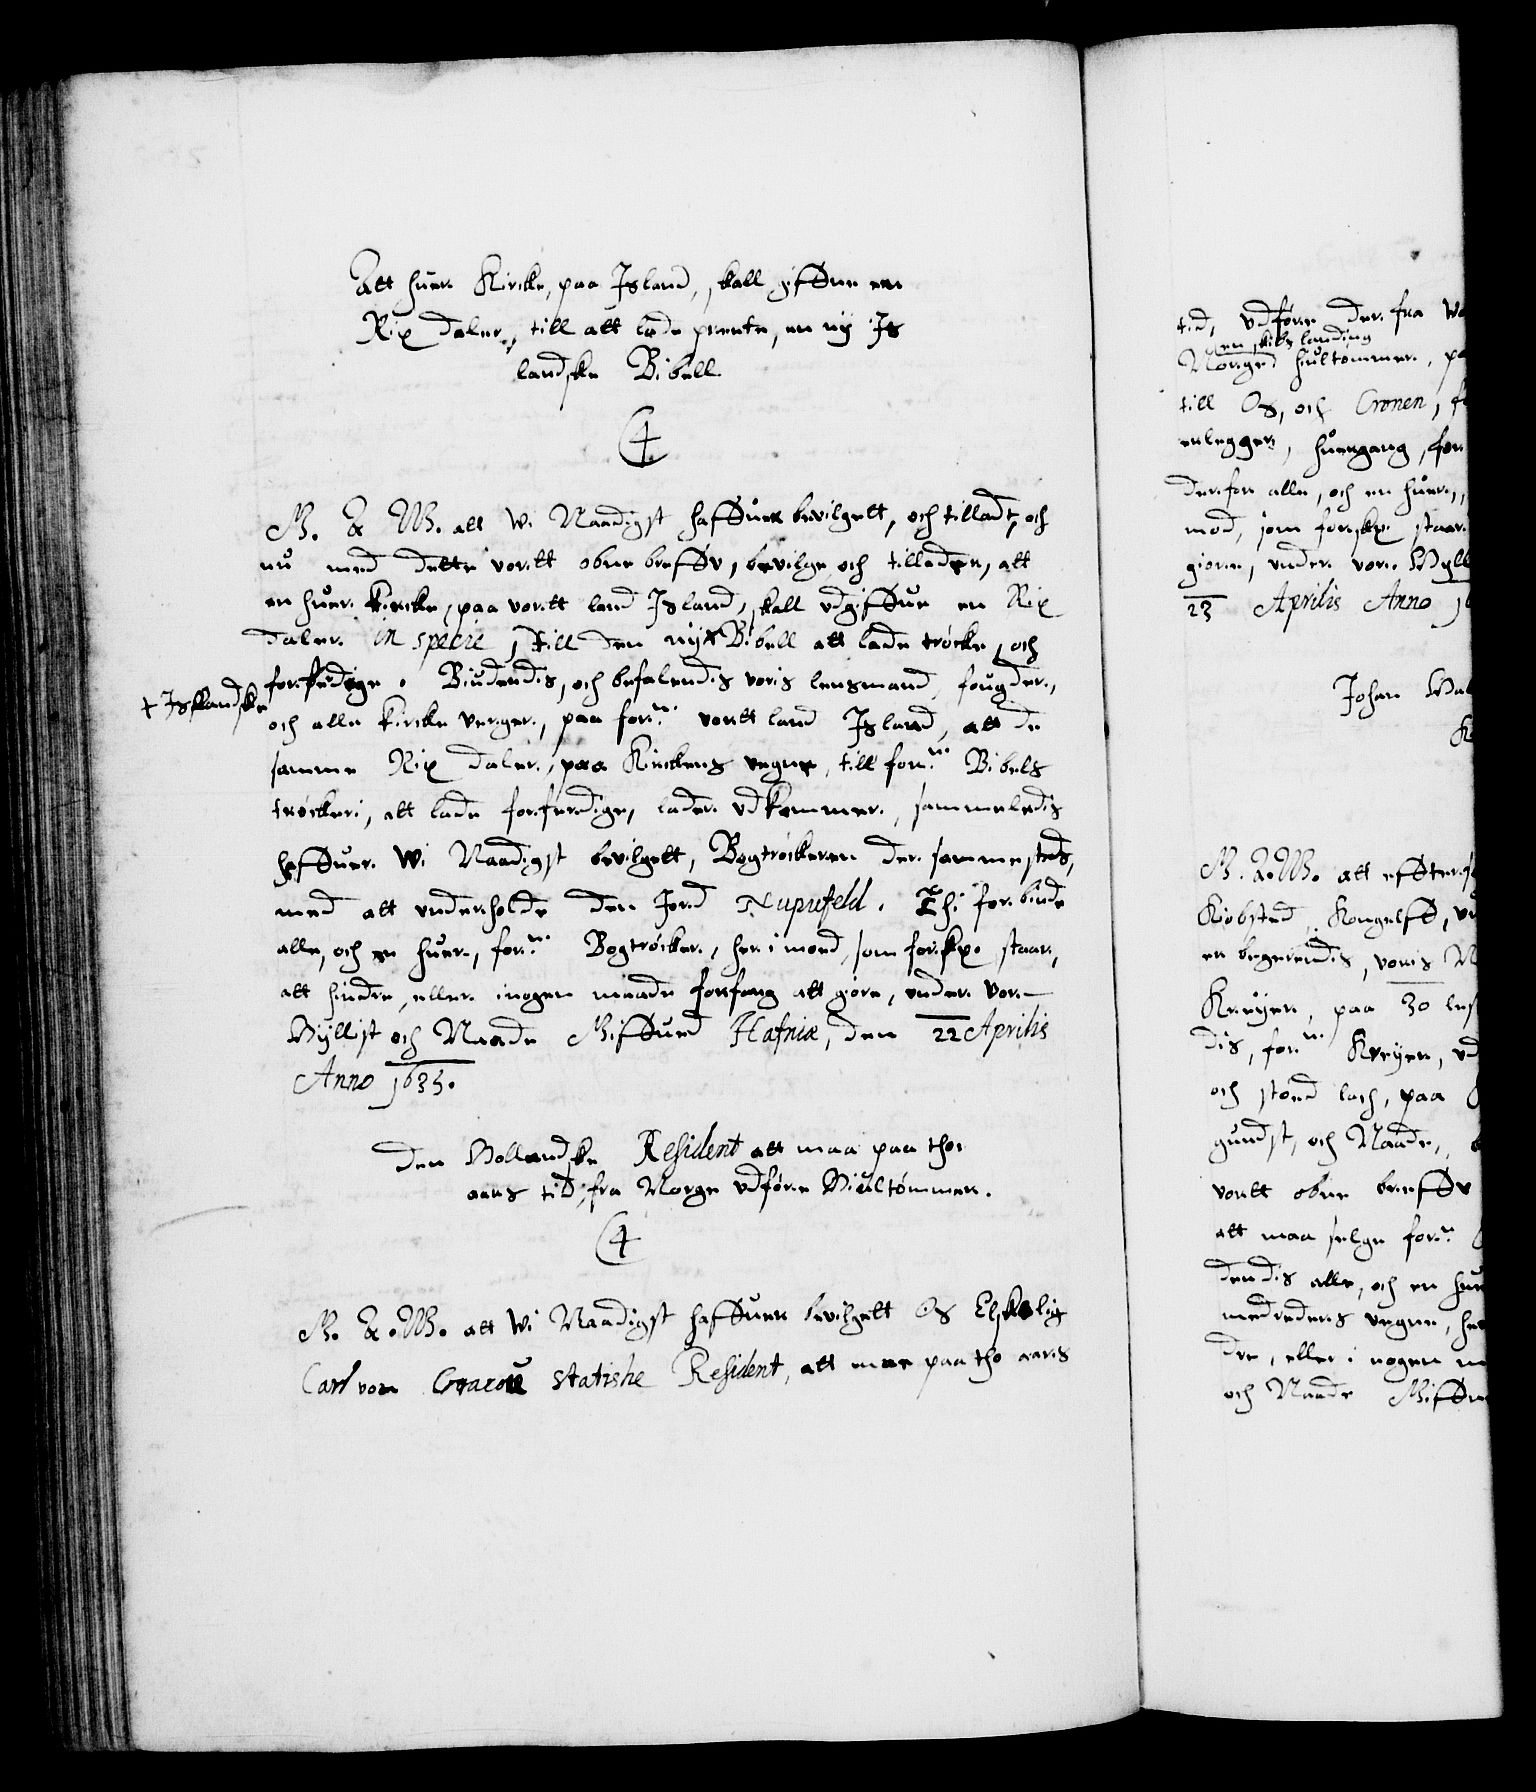 Att huer Kircke, paa Island, skall giffue en
Rix daler, till att lade prente, en ny Is
landske Bibell.
C4.
G. A. W. att Wi Naadigst haffuer bevilgett, och tilladt, och
nu med dette vortt obne breff, bevilge och tillader, att
en huer kircke, paa vortt land Island, skall udgiffue en Rix
daler in specie, till den ny + Bibell att lade trøcke, och
forferdige. Biudendis, och befalendis voris lensmand, fougder,
+ Isslandske
och alle kircke verger, paa forne vortt land Island, att de
samme Rix daler, paa Kirckens vegne, till forne Bibels
trøckeri, att lade forferdige, lader udkommer, sammeledis
haffuer Wi Naadigst bevilgett, Bogtrøckeren der sammesteds,
med att underholde den Jord Nupufeld. Thi forbiude
alle, och en huer, forne Bogtrøcker, her imod, som forskr. staar,
att hindre, eller i nogen maade forfang att giøre, under vor
Hyllist och Naade Giffued Hafniæ, den 22 Aprilis
Anno 1635.
Den Hollandske Resident att maa paa tho
aars tid, fra Norge udføre Hiultømmer.
C4
G. A. W. att Wi Naadigst haffuer bevilgett Os Elskelig
Carl von Cracou statishe Resident, att maa paa tho aars
tid, udføre der fra
en skibs landing
Norge hiultømmer,
till Os, och Cronen,
erlegger, huergang, for
der for alle, och en huer,
mod, som forskr. staar
giøre, under vor Hyll
23 Aprilis Anno
Johan
G. A. W. att effter
Kiøbsted Kongelff,
er begerendis, voris
Kreyer, paa 30
dis, forne Kreyer,
och stoed lach, paa
gundst, och Naade,
vortt obne breff
att maa selge forne
dendis alle, och en huer
medreders vegne,
dre, eller i nogen
och Naade Giffue